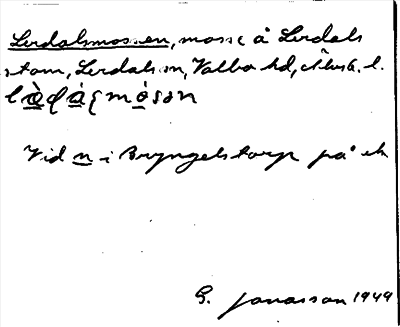 Lerdalsmossen, mosse å Lerdals
stom, Lerdals sn, Valbo hd, Älvsb. l.
Vid n i Bryngelstorp på ek
G. Jonasson 1949